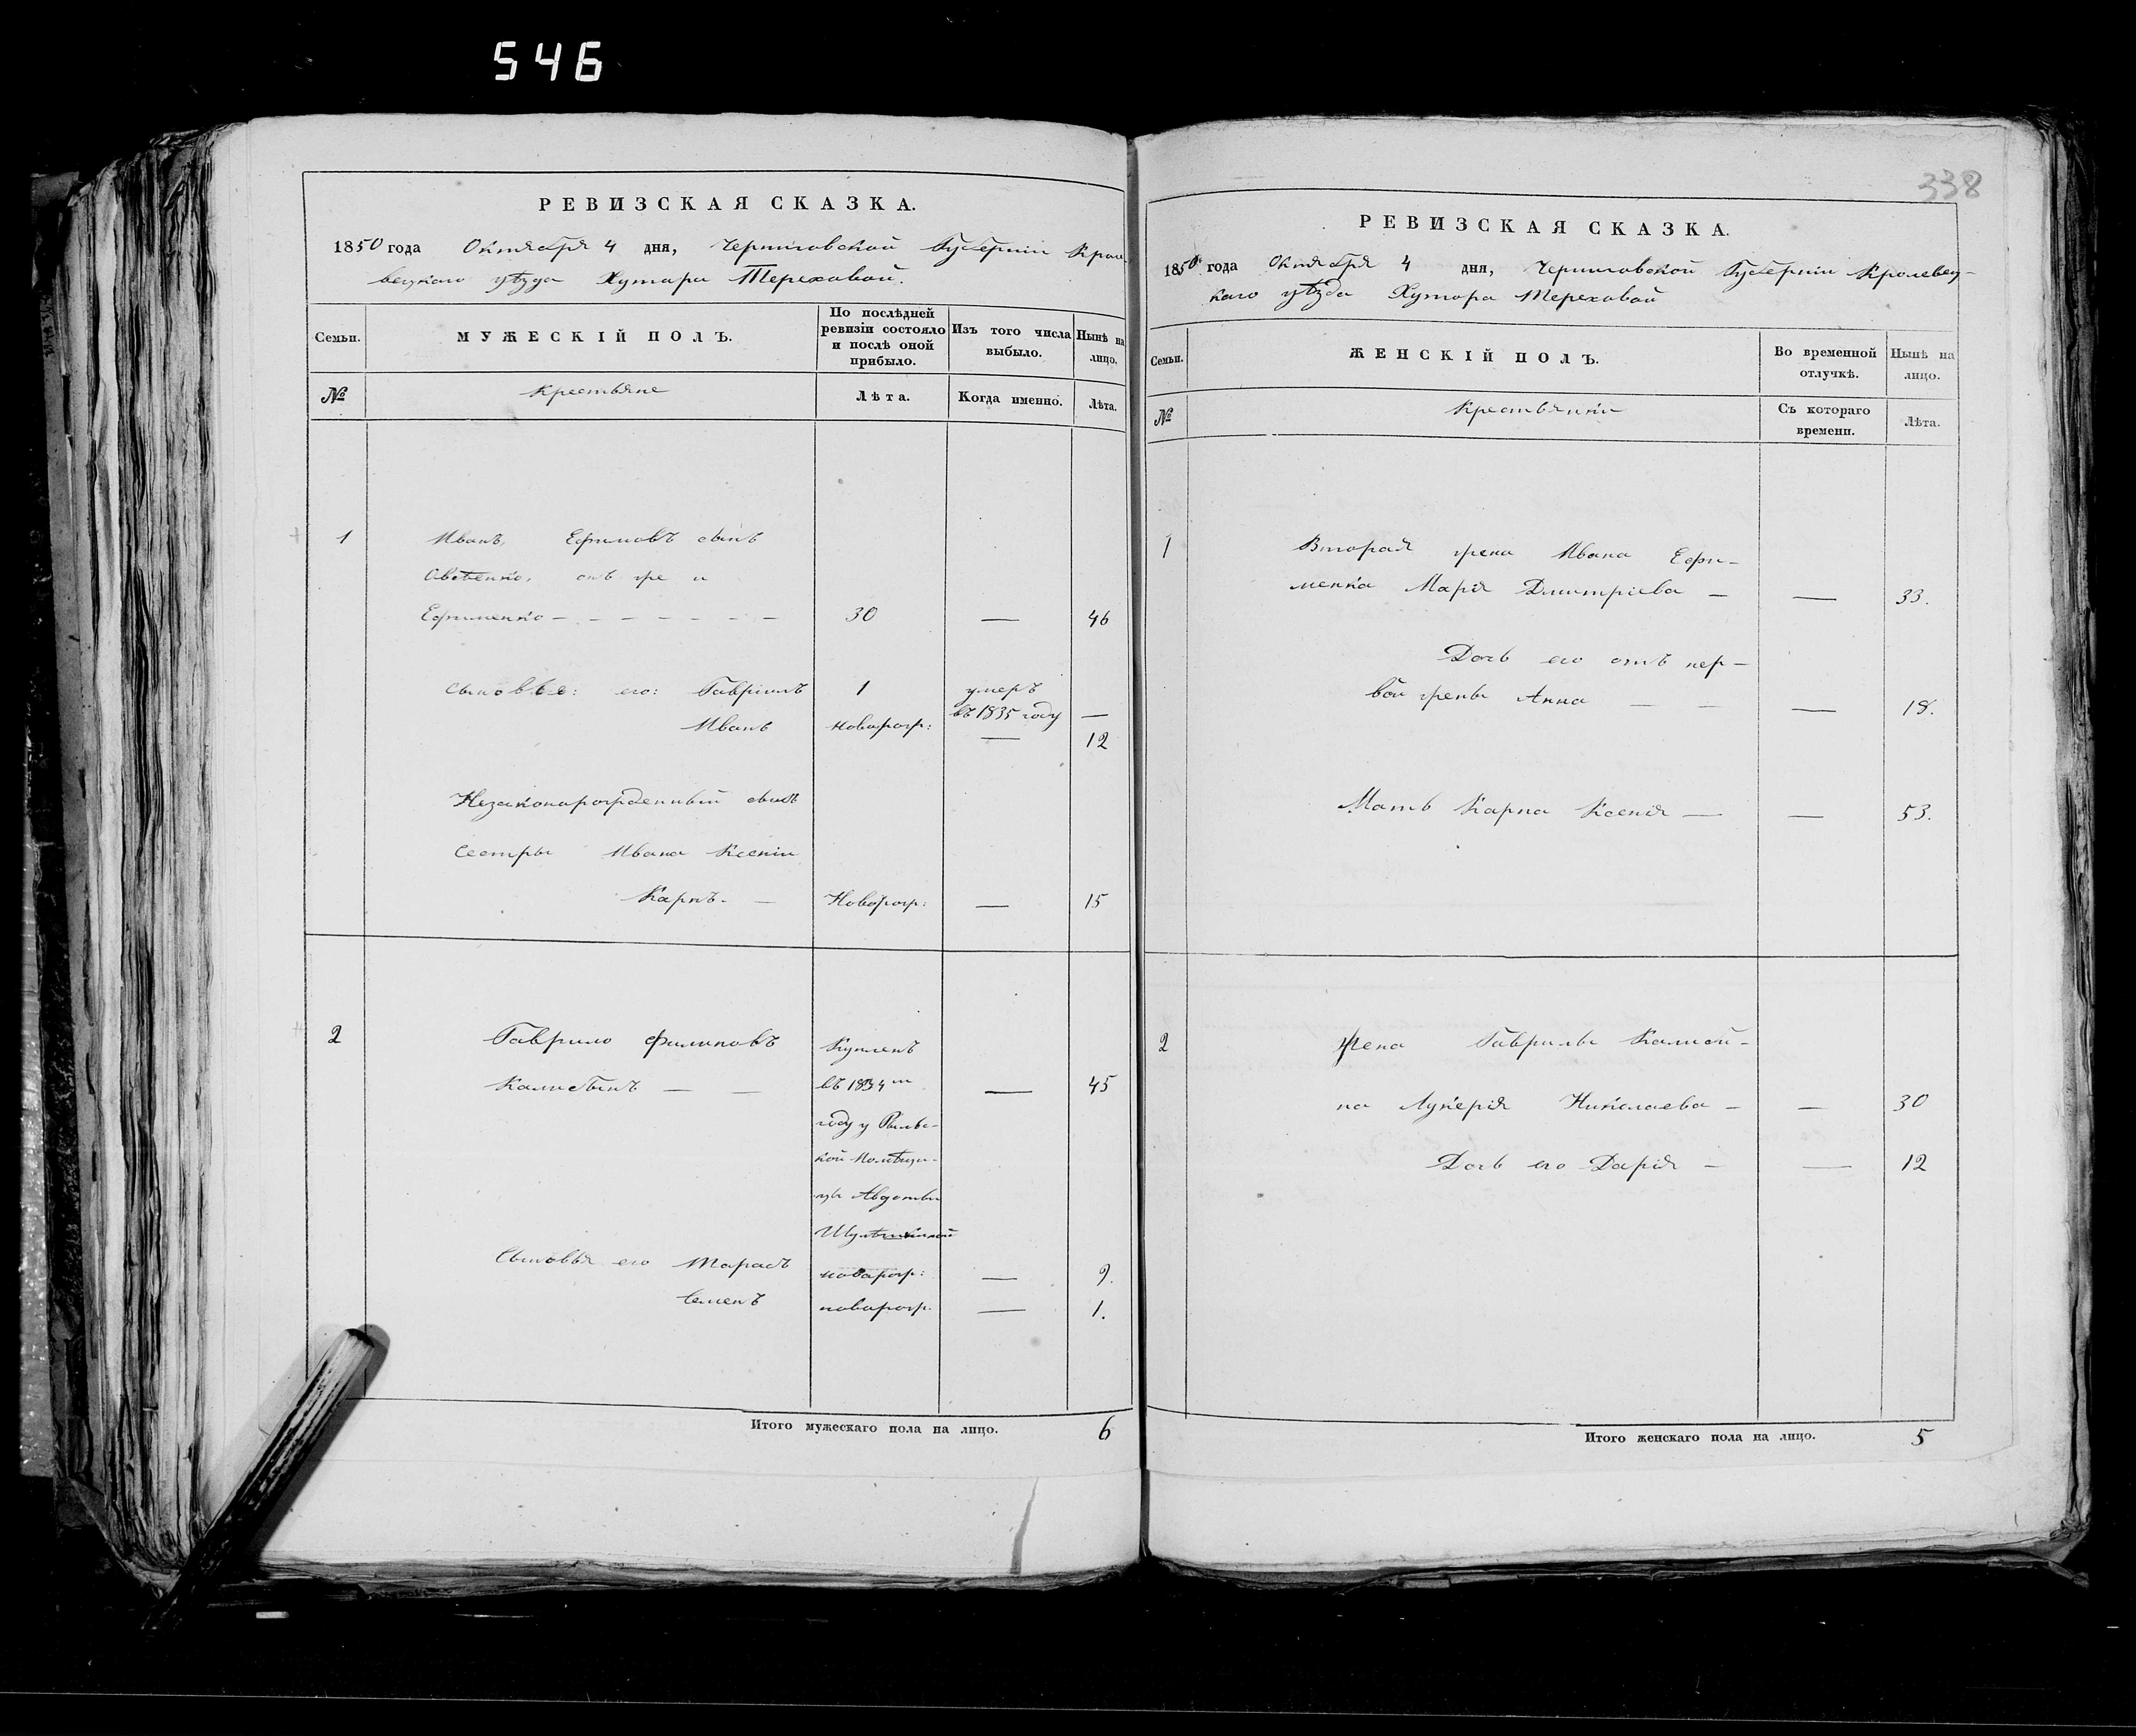 546
338
РЕВИЗСКАЯ СКАЗКА.
1850 года Октября 4 дня, Черниговской Губерніи Кроле-
вецкаго уѣзда Хутора Тереховой.
Семьи.
МУЖЕСКІЙ ПОЛЪ.
По послѣдней ревизіи состояло и послѣ оной прибыло.
Изъ того числа выбыло.
Нынѣ на лицо.
№
Крестьяне
Лѣта.
Когда именно.
Лѣта.
1 Иванъ Ефимовъ сынъ
онъ же и
Ефименко — 30 — 46
Сыновье: его: Гавріилъ 1 умеръ
въ 1835 году —
Иванъ новорож: — 12
Незаконорожденный сынъ
Сестры Ивана Ксеніи
Карпъ. — Новорож: — 15
2 Гаврило Филиповъ Купленъ
— — въ 1834м — 45
году у Рыльс-
кой Помѣщи-
цы Авдотьи
Сыновья его Тарасъ новорож: — 9.
Семенъ новорож. — 1.
Итого мужескаго пола на лицо. 6
РЕВИЗСКАЯ СКАЗКА.
1850 года Октября 4 дня, Черниговской Губерніи Кролевец-
каго уѣзда Хутора Тереховой
Семьи.
ЖЕНСКІЙ ПОЛЪ.
Во временной отлучкѣ.
Нынѣ на лицо.
№
Крестьянки
Съ котораго времени.
Лѣта.
1 Вторая жена Ивана Ефи-
менка Марія Дмитріева — — 33.
Дочь его отъ пер-
вой жены Анна — — — 18.
Мать Карпа Ксенія — — 53.
2 Жена Гаврилы
на Лукерія Николаева — — 30
Дочь его Дарія — — 12
Итого женскаго пола на лицо. 5